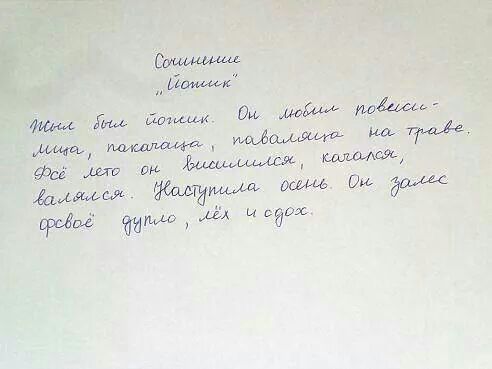 Сочинение
"Йожик"
Жыл был йожик. Он любил повесили-
лица, пакачаца, паваляца на траве.
Фсё лето он висилился, качался,
валялся. Наступила осень. Он залес
фсваё дупло, лёх и сдох.